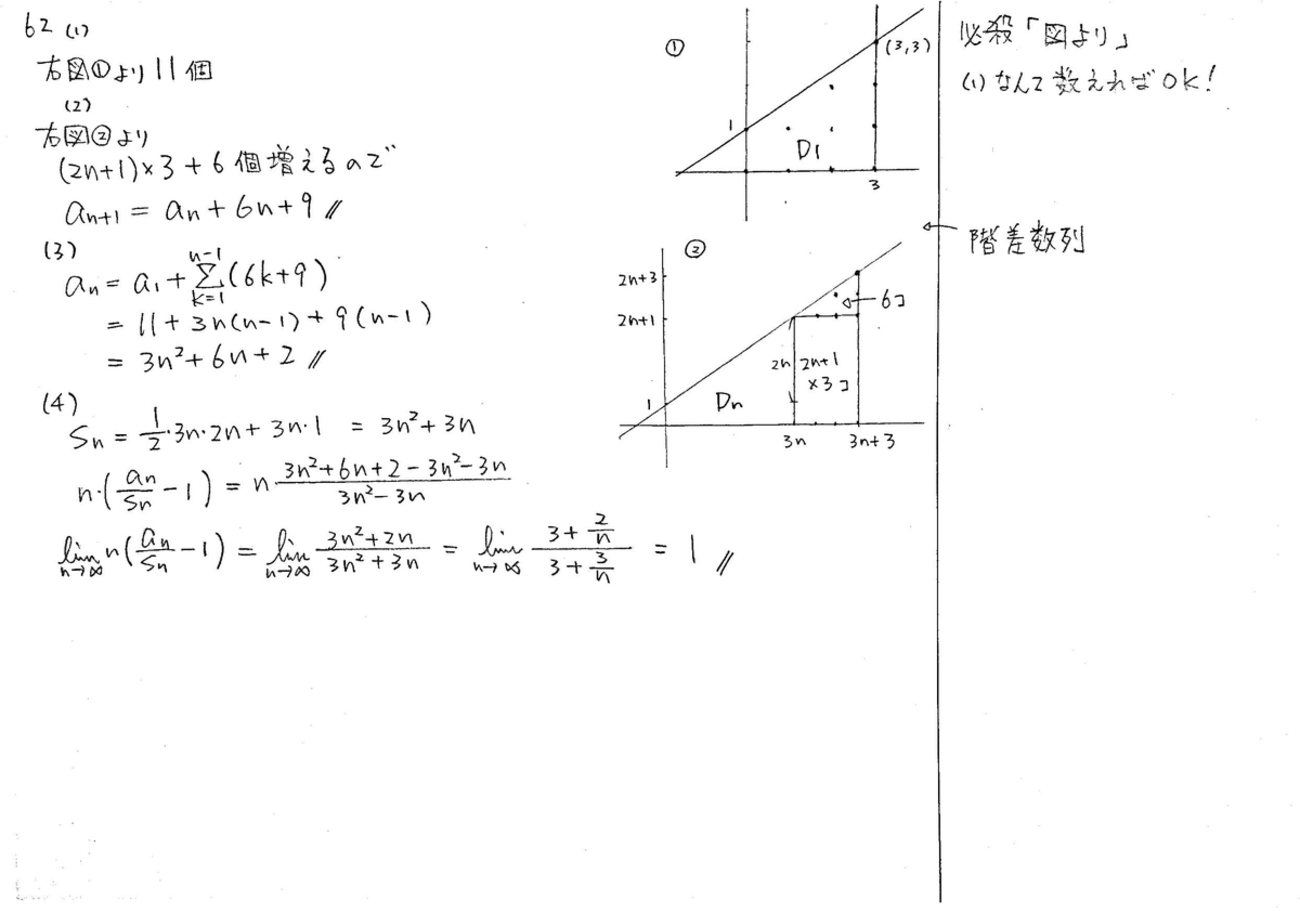 62 (1)
右図①より11個
(2)
右図②より
(2n+1)×3+6個増えるので
a_{n+1} = a_n + 6n + 9 //
(3)
a_n = a_1 + \sum_{k=1}^{n-1} (6k+9)
= 11 + 3n(n-1) + 9(n-1)
= 3n² + 6n + 2 //
(4)
S_n = \frac{1}{2}・3n・2n + 3n・1 = 3n² + 3n
n・(\frac{a_n}{S_n} - 1) = n \frac{3n²+6n+2-3n²-3n}{3n²-3n}
\lim_{n→∞} n(\frac{a_n}{S_n} - 1) = \lim_{n→∞} \frac{3n²+2n}{3n²+3n} = \lim_{n→∞} \frac{3+\frac{2}{n}}{3+\frac{3}{n}} = 1 //
①
(3,3)
1
D1
3
②
2n+3
6コ
2n+1
2n
2n+1
×3コ
1
Dn
3n
3n+3
必殺「図より」
(1)なんて数えればOK!
← 階差数列